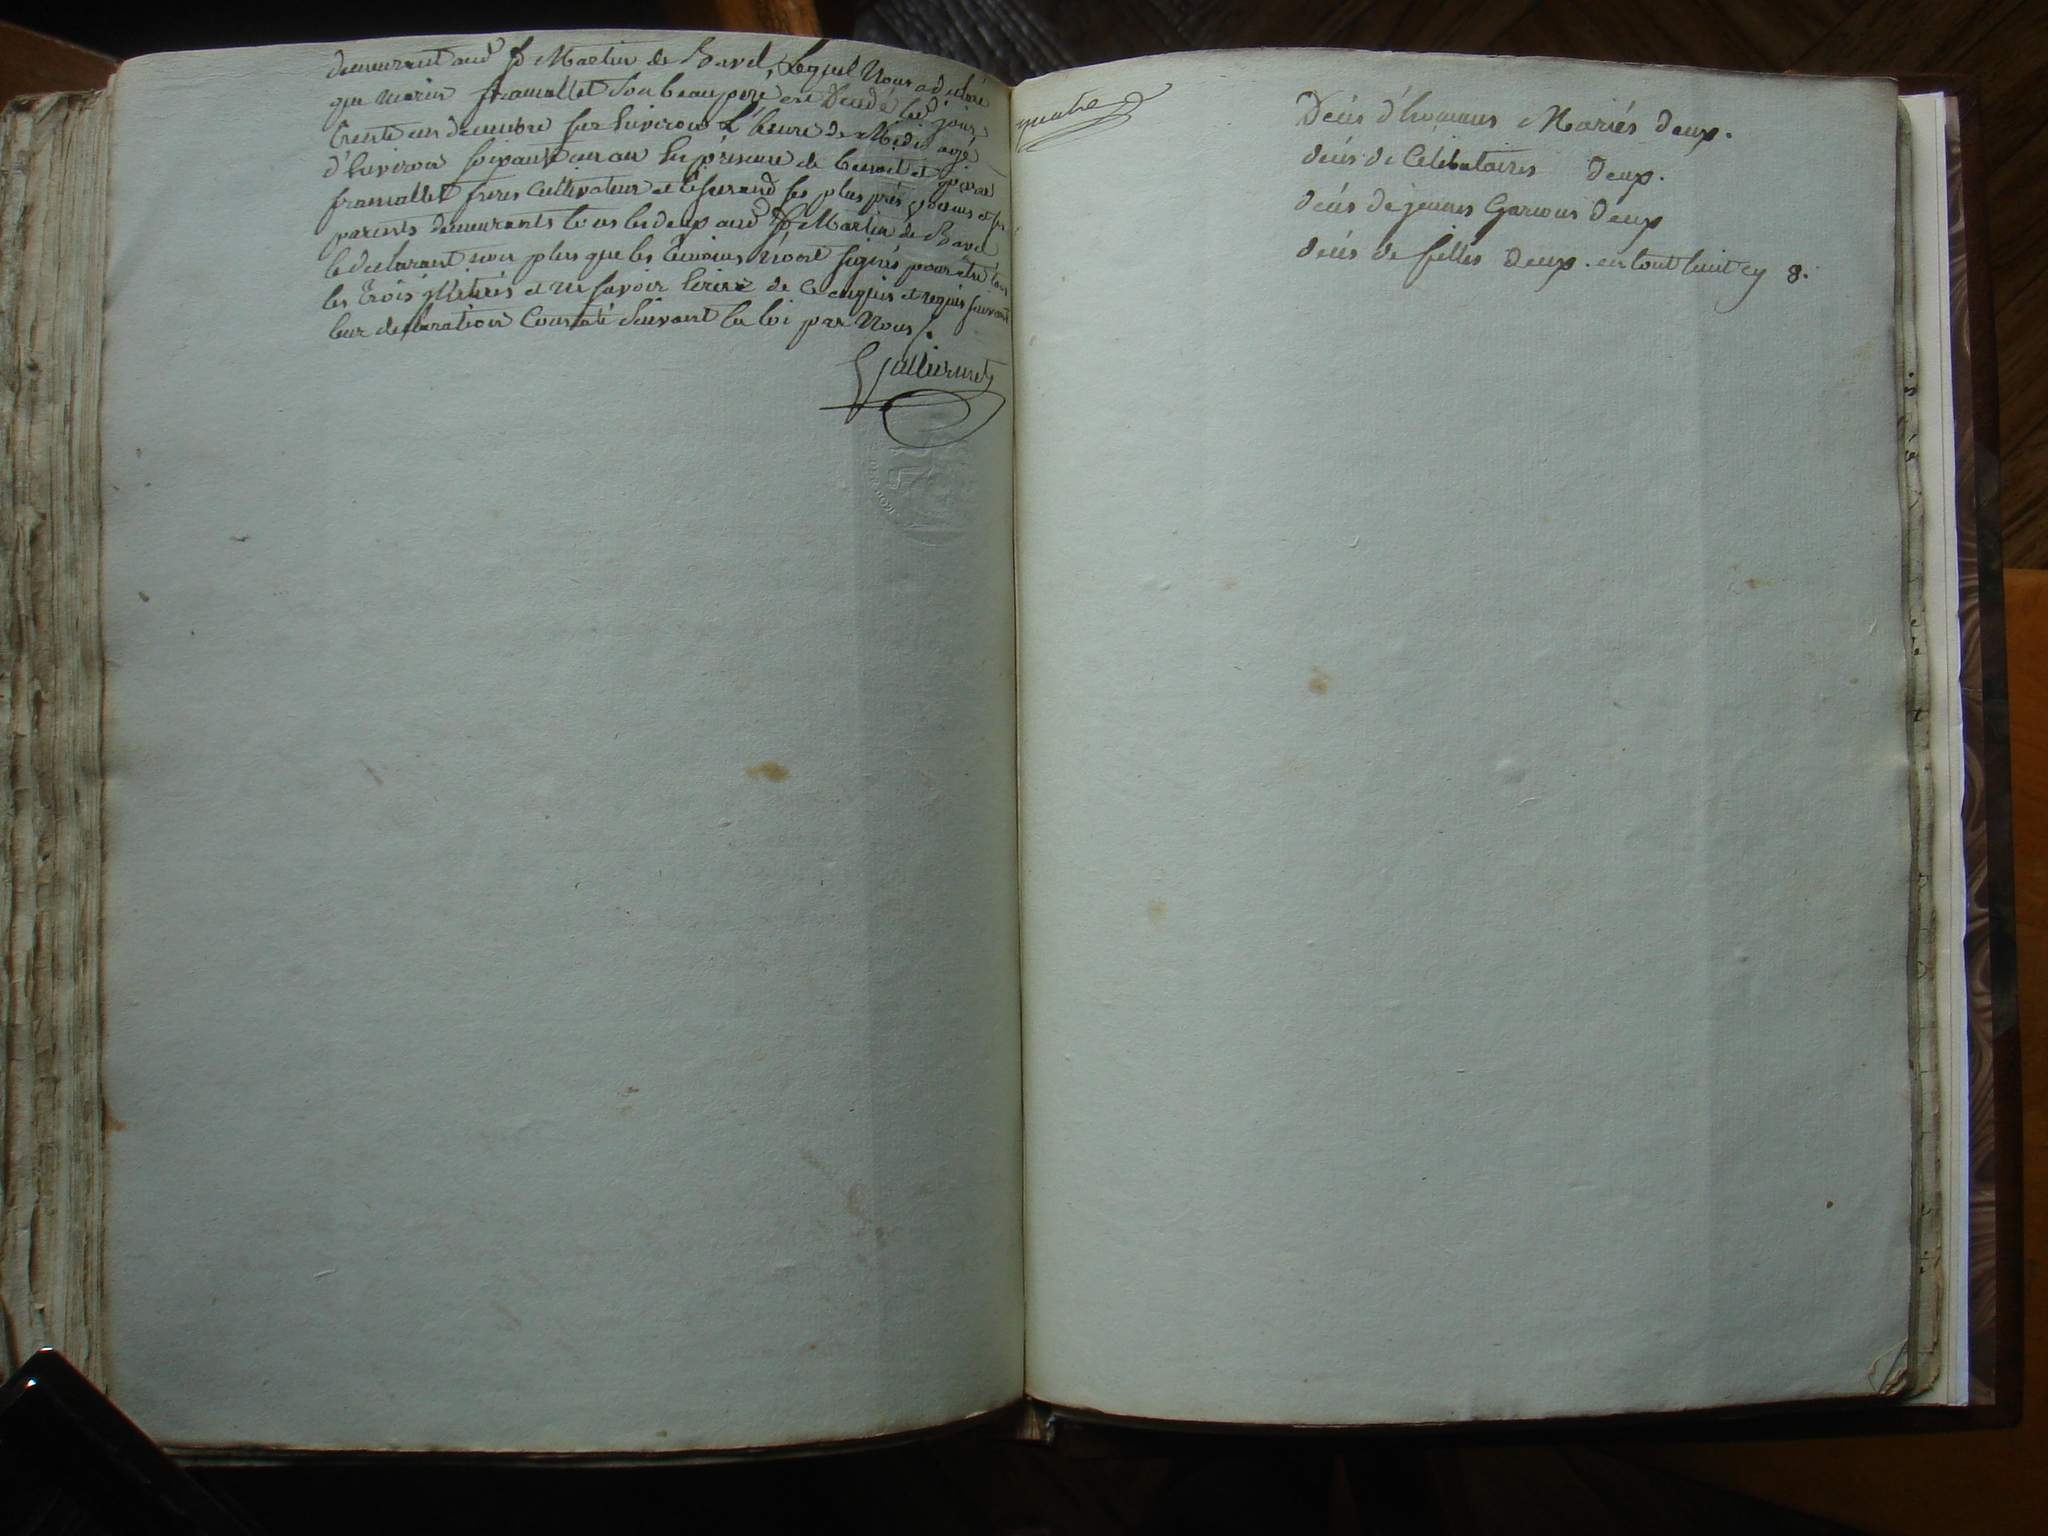 demeurant aud St Martin de Bavel, Lequel Nous a déclaré
que Marin framallet son beaupere est Decedé led jour
trente un decembre sur Lenviron L'heure de Midi agé
d'Environ soixante un an En présence de benoit et
framallet freres Cultivateur et tisserand ses plus près voisins et ses
parents demeurants tous les deux aud St Martin de Bavel
le declarant non plus que les temoins N'ont signés pour être tous
les trois illitérés et Ne savoir Ecrire de ce enquis et requis suivant
leur declaration Constaté Suivant la loi par Nous /.
quatre
Décés d'hommes Mariés deux.
décés de Celibataires Deux.
décés de jeunes Garcons Deux
décés de filles Deux. en tout huit cy 8.